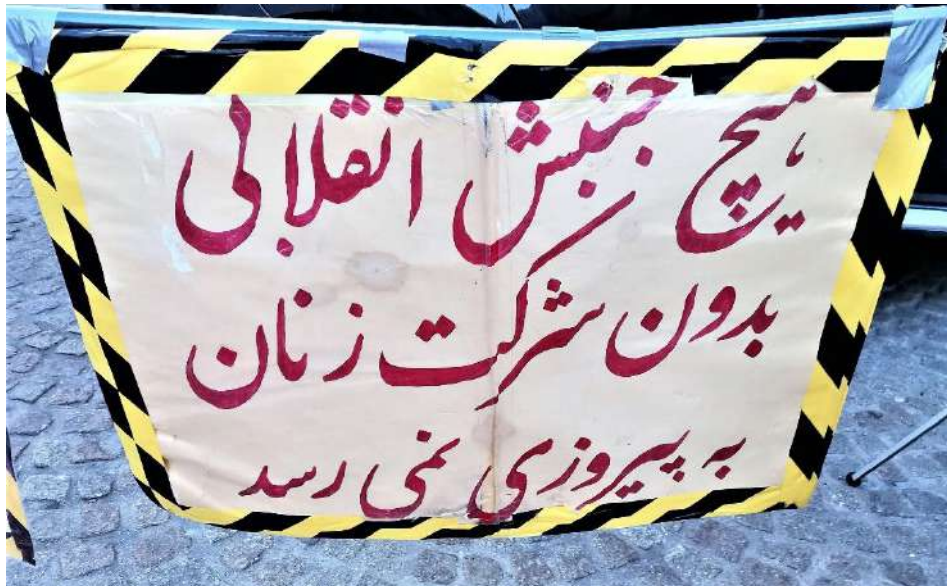 هیچ جنبش انقلابی
بدون شرکت زنان
به پیروزی نمی رسد